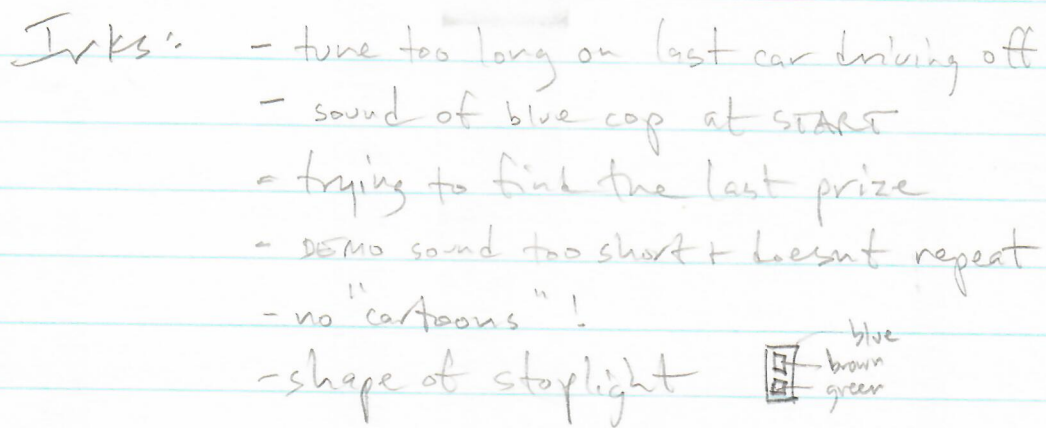 Irks: - tune too long on last car driving off
- sound of blue cop at START
- trying to find the last prize
- DEMO sound too short + doesnt repeat
- no "cartoons"!
- shape of stoplight
blue
brown
green